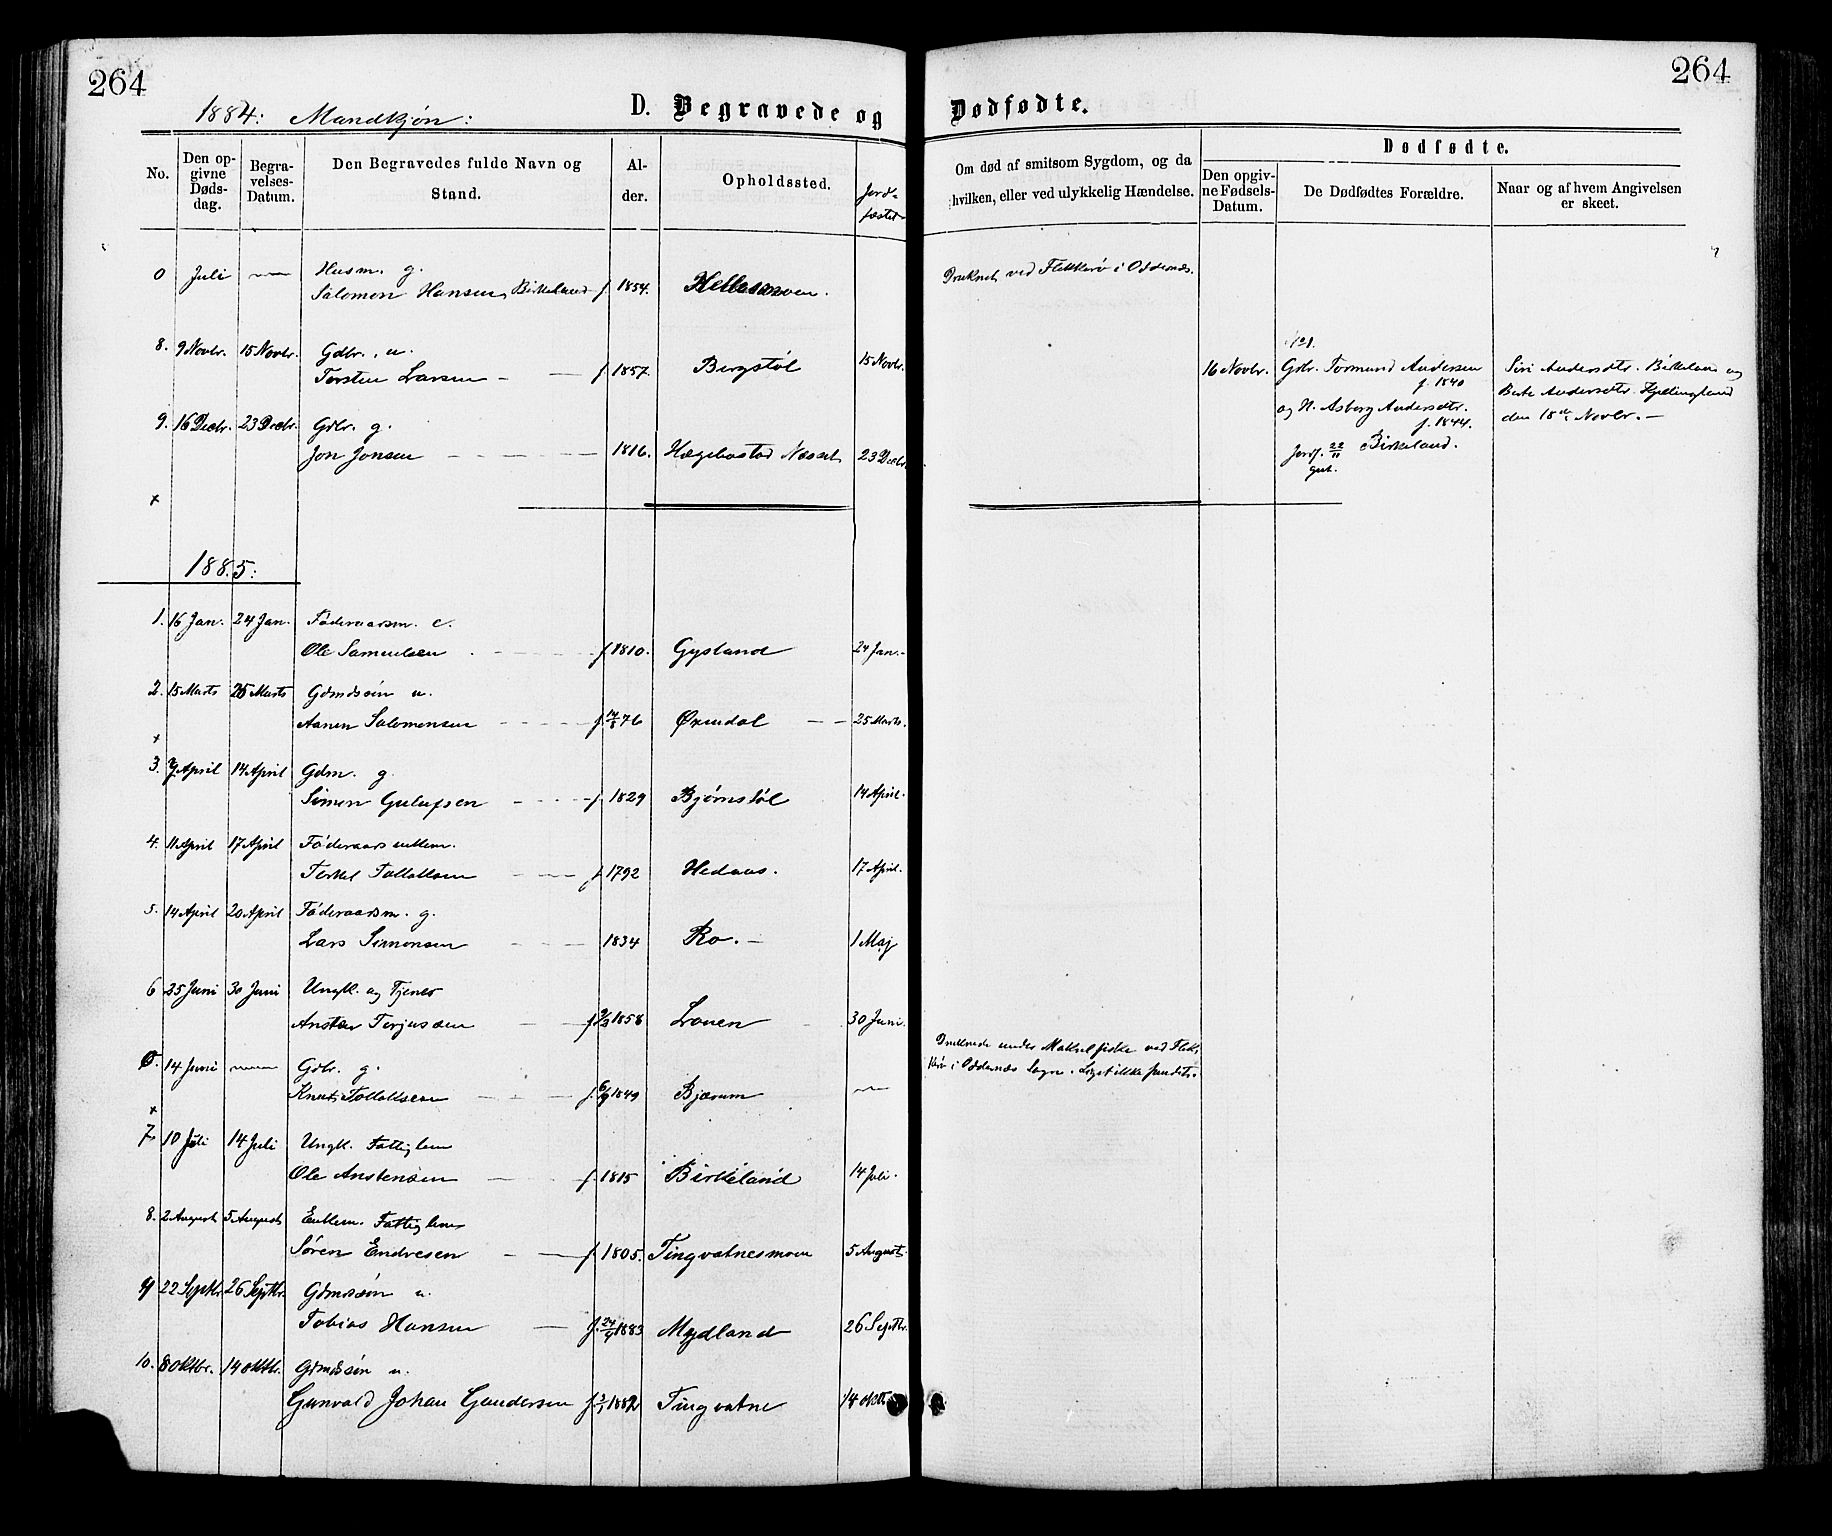 264
264
1884: Mandkjøn:
D. Begravede og Dødfødte.
No.
Den opgivne Dødsdag.
Begravelses-Datum.
Den Begravedes fulde Navn og Stand.
Alder.
Opholdssted.
Jordfæstet
Om død af smitsom Sygdom, og da hvilken, eller ved ulykkelig Hændelse.
Dødfødte.
Den opgivne Fødsels-Datum.
De Dødfødtes Forældre.
Naar og af hvem Angivelsen er skeet.
0 Juli — Husm. g.
Salomon Hansen, Birkeland f. 1854. Hellesmoen. Druknet ved Flekkerø i Oddernæs.
8. 9 Novbr. 15 Novbr. Gdbr. u.
Torsten Larsen - — f. 1857. Bergstøl 15 Novbr.
16 Novbr. Gdbr. Tormund Andersen
f. 1840
og H. Asberg Andersdtr.
f. 1844.
Jordf. 22/11 Birkeland.
Siri Andersdtr. Birkeland og
Berte Andersdtr. Kjellingland
den 18de Novbr. —
9. 16 Decbr. 23 Decbr. Gdbr. g.
Jon Jonsen — 1816. Hægebostad Næsset 23 Decbr.
x
1885:
1. 16 Jan. 24 Jan. Føderaadsm. e.
Ole Samuelsen - f. 1810. Gysland 24 Jan.
2. 15 Marts 25 Marts Gdmdssøn u.
Aanen Salomonsen - f. 14/8 76 Øxendal — 25 Marts.
x
3. 7 April 14 April Gdm. g.
Simon Gulufsen - f. 1829 Bjørnstøl 14 April.
4. 11 April 17 April Føderaadsenkem.
Terkel Tollaksen - f. 1792 Hedaas. 17 April.
5. 14 April 20 April Føderaadsm. g.
Lars Simonsen — 1834 Ro. — 1 Maj
6 25 Juni 30 Juni Ungk. og Tjener
Ansten Terjussen — f. 2/3 1858 Lauen 30 Juni.
0. 14 Juni — Gdbr. g.
Knut Tollaksen - f. 6/9 1849 Bjærum —
Druknede under Makrelfiske ved Flek-
kerø i Oddernæs Sogn. Liget ikke fundet.
x
7. 10 Juli 14 Juli Ungk. Fattiglem
Ole Anstensen — f. 1815 Birkeland 14 Juli.
8. 2 August 5 August Enkem. Fattiglem
Søren Endresen - — f. 1805. Tingvatnesmoen 5 August.
9 22 Septbr. 26 Septbr. Gdmdssøn u.
Tobias Hansen — f. 24/4 1883 Mydland 26 Septbr.
10. 8 Oktbr. 14 Oktbr. Gdmdssøn u.
Gunvald Johan Gundersen f. 3/1 1882 Tingvatne 14 Oktb